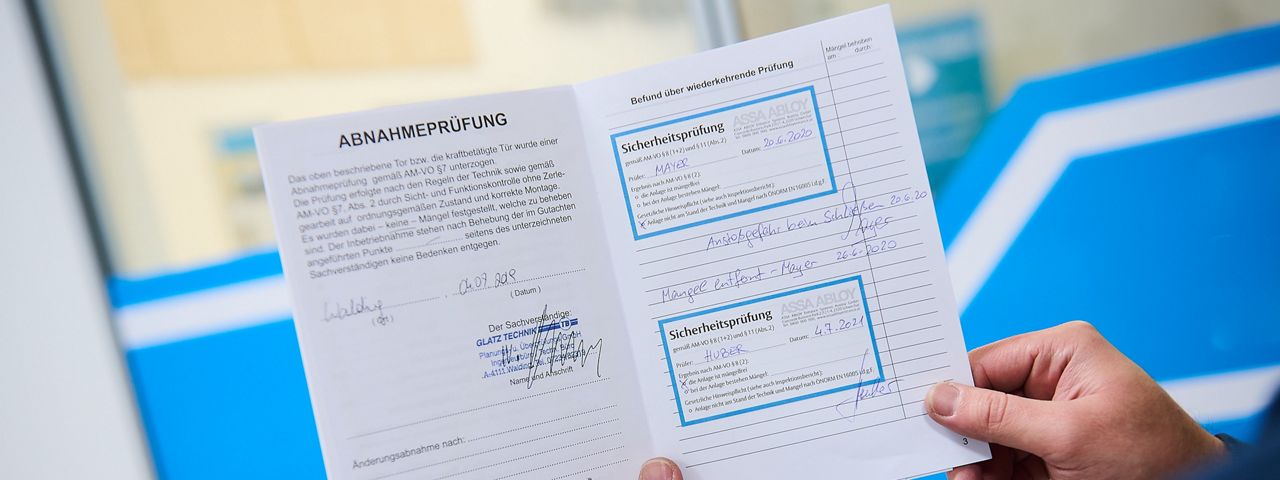 ABNAHMEPRÜFUNG
Das oben beschriebene Tor bzw. die kraftbetätigte Tür wurde einer
Abnahmeprüfung gemäß AM-VO §7 unterzogen.
Die Prüfung erfolgte nach den Regeln der Technik sowie gemäß
AM-VO §7, Abs. 2 durch Sicht- und Funktionskontrolle ohne Zerle-
gearbeit auf ordnungsgemäßen Zustand und korrekte Montage.
Es wurden dabei – keine – Mängel festgestellt, welche zu beheben
sind. Der Inbetriebnahme stehen nach Behebung der im Gutachten
angeführten Punkte seitens des unterzeichneten
Sachverständigen keine Bedenken entgegen.
Walding, 04.07.2018
(Ort) (Datum)
Der Sachverständige:
GLATZ TECHNIK TB
Planungs- u. Überprüfungs
A-4111 Walding, Tel.
Name und Anschrift
Änderungsabnahme nach:
Befund über wiederkehrende Prüfung
Mängel behoben
am durch
ASSA ABLOY
Sicherheitsprüfung
gemäß AM-VO § 8 (1+2) und § 11 (Abs. 2)
Prüfer: MAYER Datum: 20.6.2020
Ergebnis nach AM-VO § 8 (2):
o die Anlage ist mängelfrei
o bei der Anlage bestehen Mängel:
Gesetzliche Hinweispflicht (siehe auch Inspektionsbericht):
x Anlage nicht am Stand der Technik und Mängel nach ÖNORM EN 16005 i.d.g.F
Anstoßgefahr beim Schließen 20.6.20
Mangel entfernt - Mayer 26-6-2020
ASSA ABLOY
Sicherheitsprüfung
gemäß AM-VO § 8 (1+2) und § 11 (Abs. 2)
Prüfer: HUBER Datum: 4.7.2021
Ergebnis nach AM-VO § 8 (2):
x die Anlage ist mängelfrei
o bei der Anlage bestehen Mängel:
Gesetzliche Hinweispflicht (siehe auch Inspektionsbericht):
o Anlage nicht am Stand der Technik und Mängel nach ÖNORM EN 16005 i.d.g.F
Huber
3